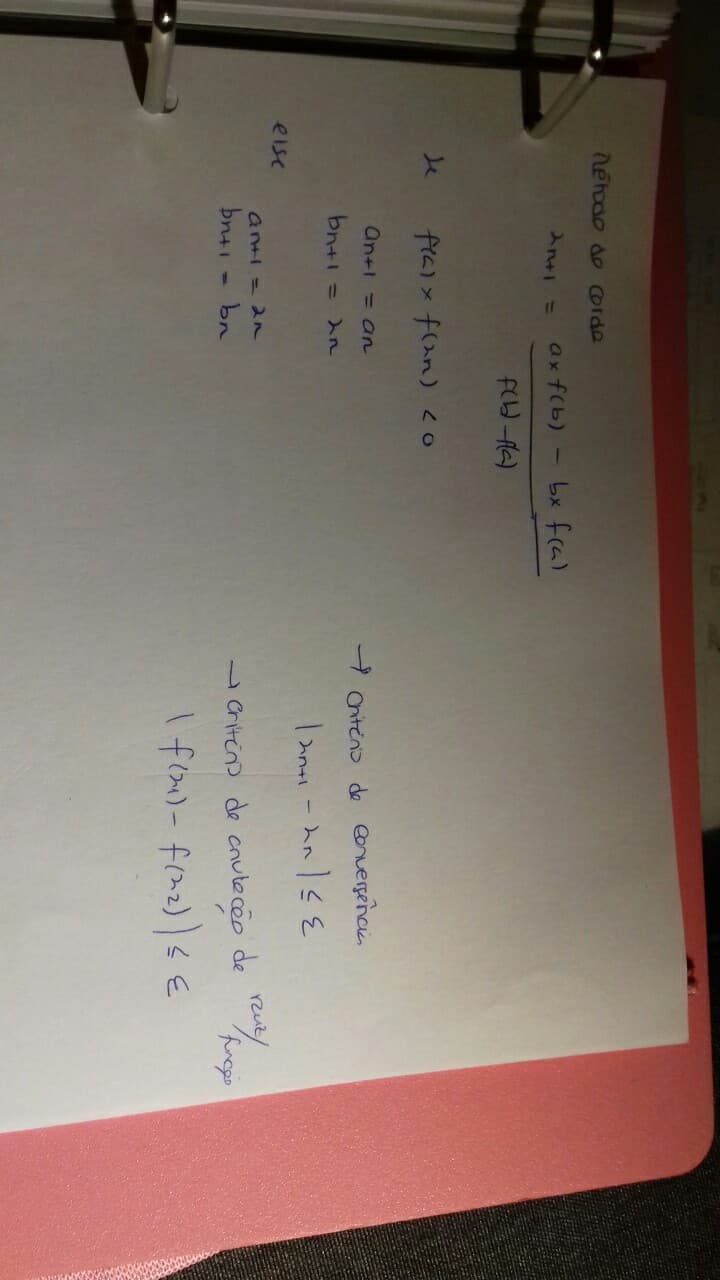 Método da corda
xn+1 = a x f(b) - b x f(a)
f(b) - f(a)
Se f(a) x f(xn) < 0
an+1 = an
bn+1 = xn
else
an+1 = xn
bn+1 = bn
→ Critério de convergência
|xn+1 - xn| ≤ ε
→ Critério de anulação de raiz/
função
|f(x1) - f(x2)| ≤ ε